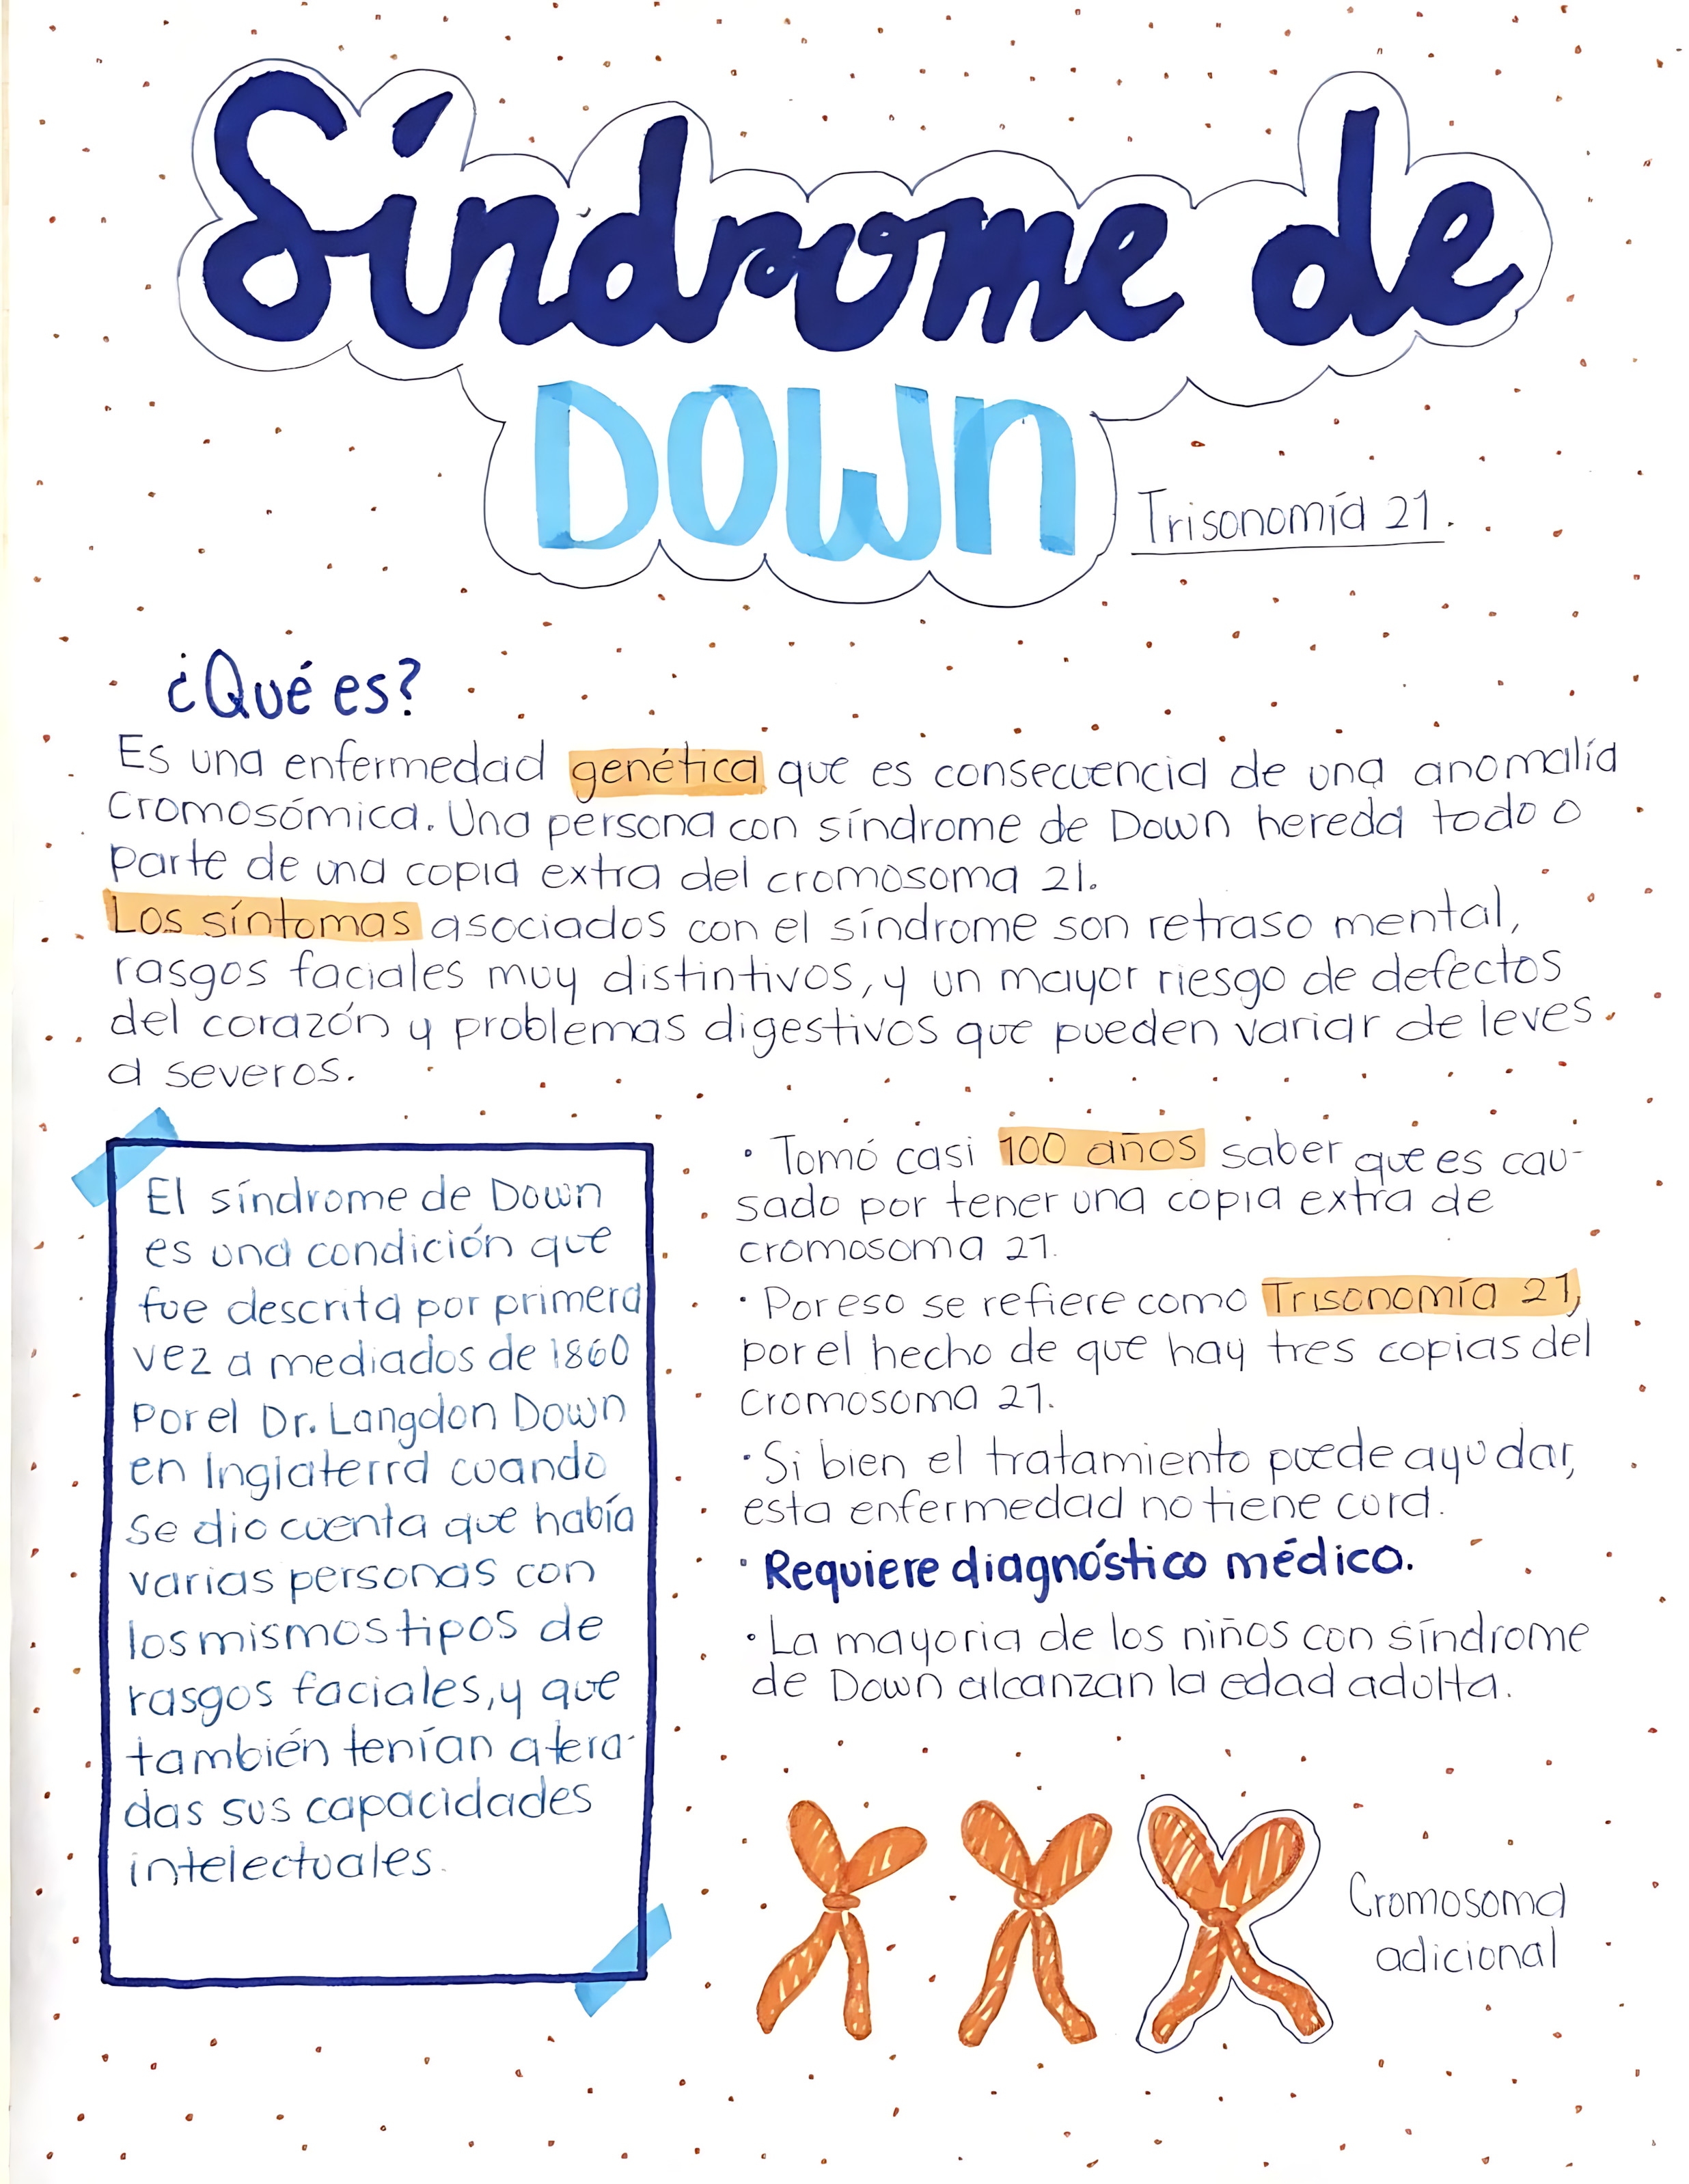 Síndrome de
DOWN
Trisonomía 21.
¿Qué es?
Es una enfermedad genética que es consecuencia de una anomalía
cromosómica. Una persona con síndrome de Down hereda todo o
parte de una copia extra del cromosoma 21.
Los síntomas asociados con el síndrome son retraso mental,
rasgos faciales muy distintivos, y un mayor riesgo de defectos
del corazón y problemas digestivos que pueden variar de leves
a severos.
El síndrome de Down
es una condición que
fue descrita por primera
vez a mediados de 1860
por el Dr. Langdon Down
en Inglaterra cuando
se dio cuenta que había
varias personas con
los mismos tipos de
rasgos faciales, y que
también tenían atera-
das sus capacidades
intelectuales.
· Tomó casi 100 años saber que es cau-
sado por tener una copia extra de
cromosoma 21.
· Por eso se refiere como Trisonomía 21,
por el hecho de que hay tres copias del
cromosoma 21.
· Si bien el tratamiento puede ayudar,
esta enfermedad no tiene cura.
· Requiere diagnóstico médico.
· La mayoria de los niños con síndrome
de Down alcanzan la edad adulta.
Cromosoma
adicional